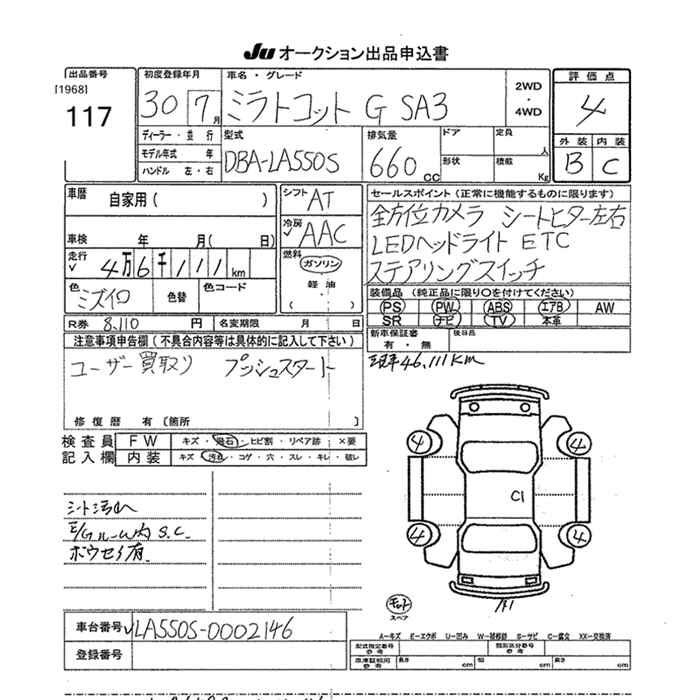 Ju オークション出品申込書
出品番号
[1968]
117
初度登録年月
30 7月
ディーラー・並行
モデル年式 年
ハンドル 左・右
車名・グレード
ミラトコット G SA3
2WD
・
4WD
型式
DBA-LA550S
排気量
660 cc
ドア
形状
定員
人
積載
Kg
評価点
4
外装 内装
B C
車歴
自家用( )
車検 年 月( 日)
走行
4万6千111km
色
ミズイロ
色替
色コード
R券 8,110 円 名変期限 月 日
シフト AT
冷房 AAC
燃料
ガソリン
軽油
( ・ )
セールスポイント(正常に機能するものに限ります)
全方位カメラ シートヒター左右
LEDヘッドライト ETC
ステアリングスイッチ
装備品(純正品に限り○を付けてください)
PS PW ABS エアB AW
SR ナビ TV 本革
新車保証書
有・無
後日品
現車46,111KM
注意事項申告欄(不具合内容等は具体的に記入して下さい)
ユーザー買取り プッシュスタート
修復歴 有〔箇所 〕
検査員
記入欄
FW キズ・飛石・ヒビ割・リペア跡 ×要
内装 キズ・汚れ・コゲ・穴・スレ・キレ・破レ
シート汚れ
E/Gルーム内 S.C.
ボウセイ有
4
4
C1
4
4
A1
キット
スペア
A-キズ E-エクボ U-凹み W-補修跡 S-サビ C-腐食 XX-交換済
車台番号 LA550S-0002146
登録番号
型式指定番号
参考
類別区分番号
参考
冷凍証紙用
参考
長さ cm 幅 cm 高さ cm